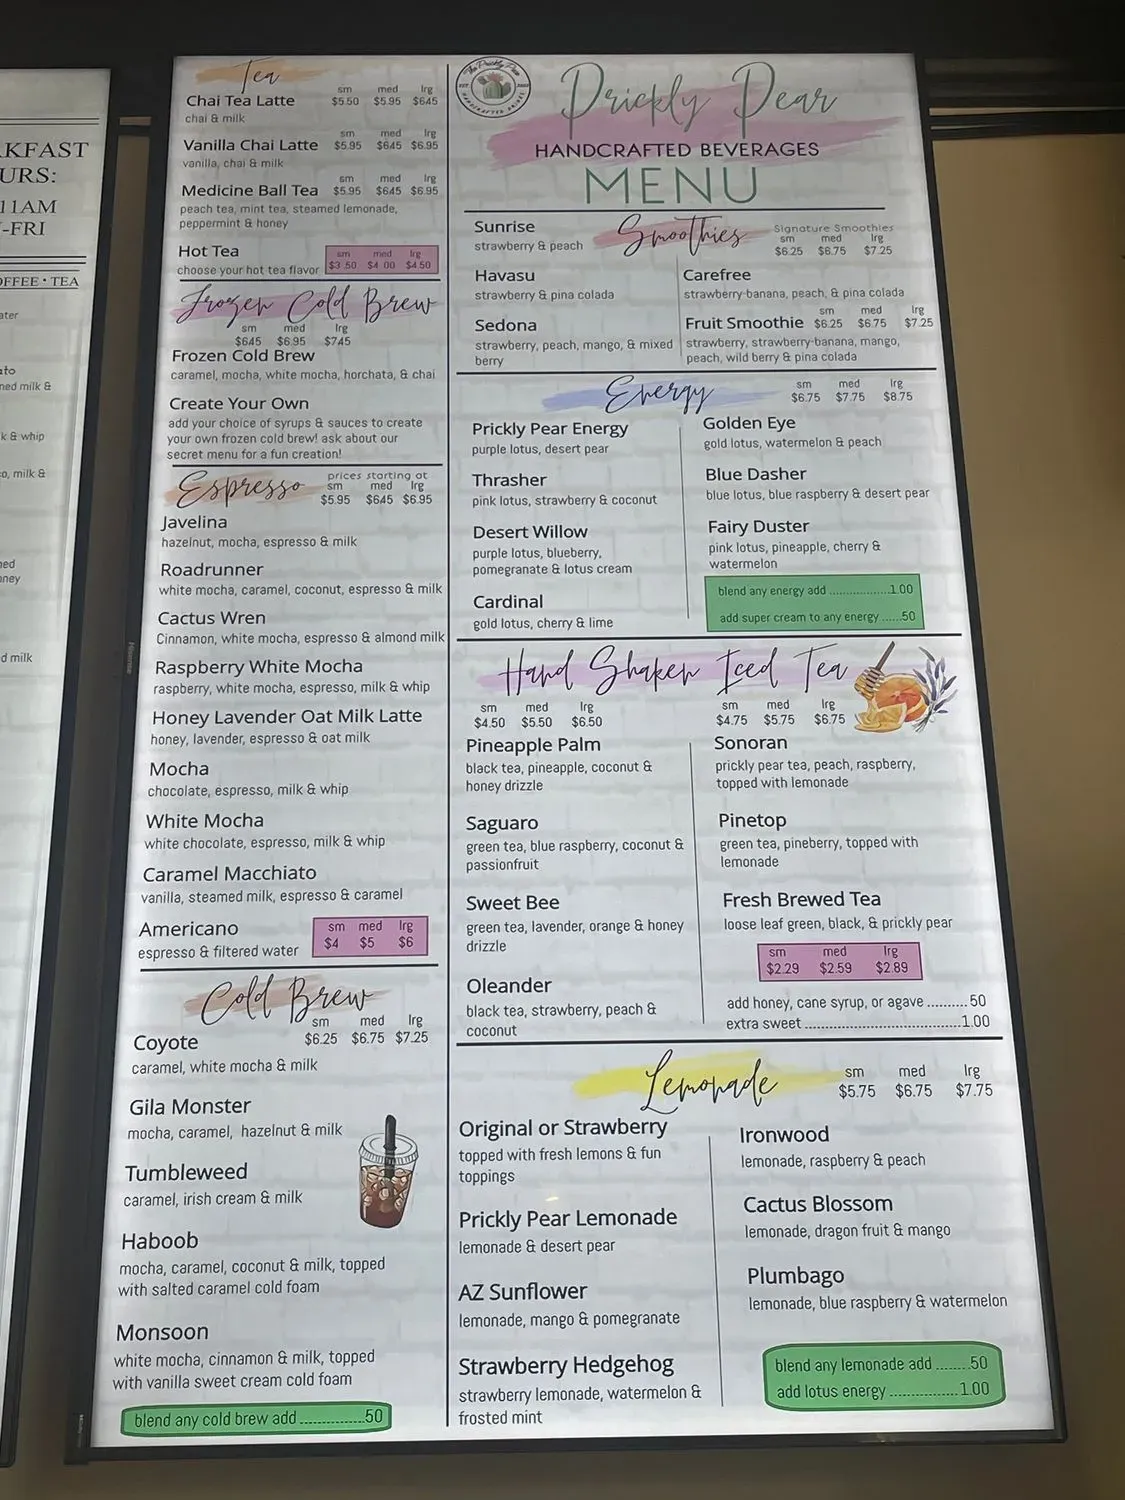 KFAST
URS:
11AM
-FRI
OFFEE • TEA
ater
ato
ned milk &
k & whip
o, milk &
ned
oney
d milk
Tea
sm med lrg
Chai Tea Latte $5.50 $5.95 $645
chai & milk
sm med lrg
Vanilla Chai Latte $5.95 $645 $6.95
vanilla, chai & milk
sm med lrg
Medicine Ball Tea $5.95 $645 $6.95
peach tea, mint tea, steamed lemonade,
peppermint & honey
Hot Tea sm med lrg
choose your hot tea flavor $3.50 $4.00 $4.50
Frozen Cold Brew
sm med lrg
$645 $6.95 $745
Frozen Cold Brew
caramel, mocha, white mocha, horchata, & chai
Create Your Own
add your choice of syrups & sauces to create
your own frozen cold brew! ask about our
secret menu for a fun creation!
Espresso prices starting at
sm med lrg
$5.95 $645 $6.95
Javelina
hazelnut, mocha, espresso & milk
Roadrunner
white mocha, caramel, coconut, espresso & milk
Cactus Wren
Cinnamon, white mocha, espresso & almond milk
Raspberry White Mocha
raspberry, white mocha, espresso, milk & whip
Honey Lavender Oat Milk Latte
honey, lavender, espresso & oat milk
Mocha
chocolate, espresso, milk & whip
White Mocha
white chocolate, espresso, milk & whip
Caramel Macchiato
vanilla, steamed milk, espresso & caramel
Americano sm med lrg
espresso & filtered water $4 $5 $6
Cold Brew
sm med lrg
$6.25 $6.75 $7.25
Coyote
caramel, white mocha & milk
Gila Monster
mocha, caramel, hazelnut & milk
Tumbleweed
caramel, irish cream & milk
Haboob
mocha, caramel, coconut & milk, topped
with salted caramel cold foam
Monsoon
white mocha, cinnamon & milk, topped
with vanilla sweet cream cold foam
blend any cold brew add ..............50
The Prickly Pear
HANDCRAFTED DRINKS
Prickly Pear
HANDCRAFTED BEVERAGES
MENU
Smoothies
Signature Smoothies
sm med lrg
$6.25 $6.75 $7.25
Sunrise
strawberry & peach
Havasu
strawberry & pina colada
Sedona
strawberry, peach, mango, & mixed
berry
Carefree
strawberry-banana, peach, & pina colada
sm med lrg
Fruit Smoothie $6.25 $6.75 $7.25
strawberry, strawberry-banana, mango,
peach, wild berry & pina colada
Energy
sm med lrg
$6.75 $7.75 $8.75
Prickly Pear Energy
purple lotus, desert pear
Thrasher
pink lotus, strawberry & coconut
Desert Willow
purple lotus, blueberry,
pomegranate & lotus cream
Cardinal
gold lotus, cherry & lime
Golden Eye
gold lotus, watermelon & peach
Blue Dasher
blue lotus, blue raspberry & desert pear
Fairy Duster
pink lotus, pineapple, cherry &
watermelon
blend any energy add ...............1.00
add super cream to any energy ......50
Hand Shaken Iced Tea
sm med lrg
$4.50 $5.50 $6.50
Pineapple Palm
black tea, pineapple, coconut &
honey drizzle
Saguaro
green tea, blue raspberry, coconut &
passionfruit
Sweet Bee
green tea, lavender, orange & honey
drizzle
Oleander
black tea, strawberry, peach &
coconut
sm med lrg
$4.75 $5.75 $6.75
Sonoran
prickly pear tea, peach, raspberry,
topped with lemonade
Pinetop
green tea, pineberry, topped with
lemonade
Fresh Brewed Tea
loose leaf green, black, & prickly pear
sm med lrg
$2.29 $2.59 $2.89
add honey, cane syrup, or agave ..........50
extra sweet ......................................1.00
Lemonade
sm med lrg
$5.75 $6.75 $7.75
Original or Strawberry
topped with fresh lemons & fun
toppings
Prickly Pear Lemonade
lemonade & desert pear
AZ Sunflower
lemonade, mango & pomegranate
Strawberry Hedgehog
strawberry lemonade, watermelon &
frosted mint
Ironwood
lemonade, raspberry & peach
Cactus Blossom
lemonade, dragon fruit & mango
Plumbago
lemonade, blue raspberry & watermelon
blend any lemonade add ........50
add lotus energy ................1.00
Hisense